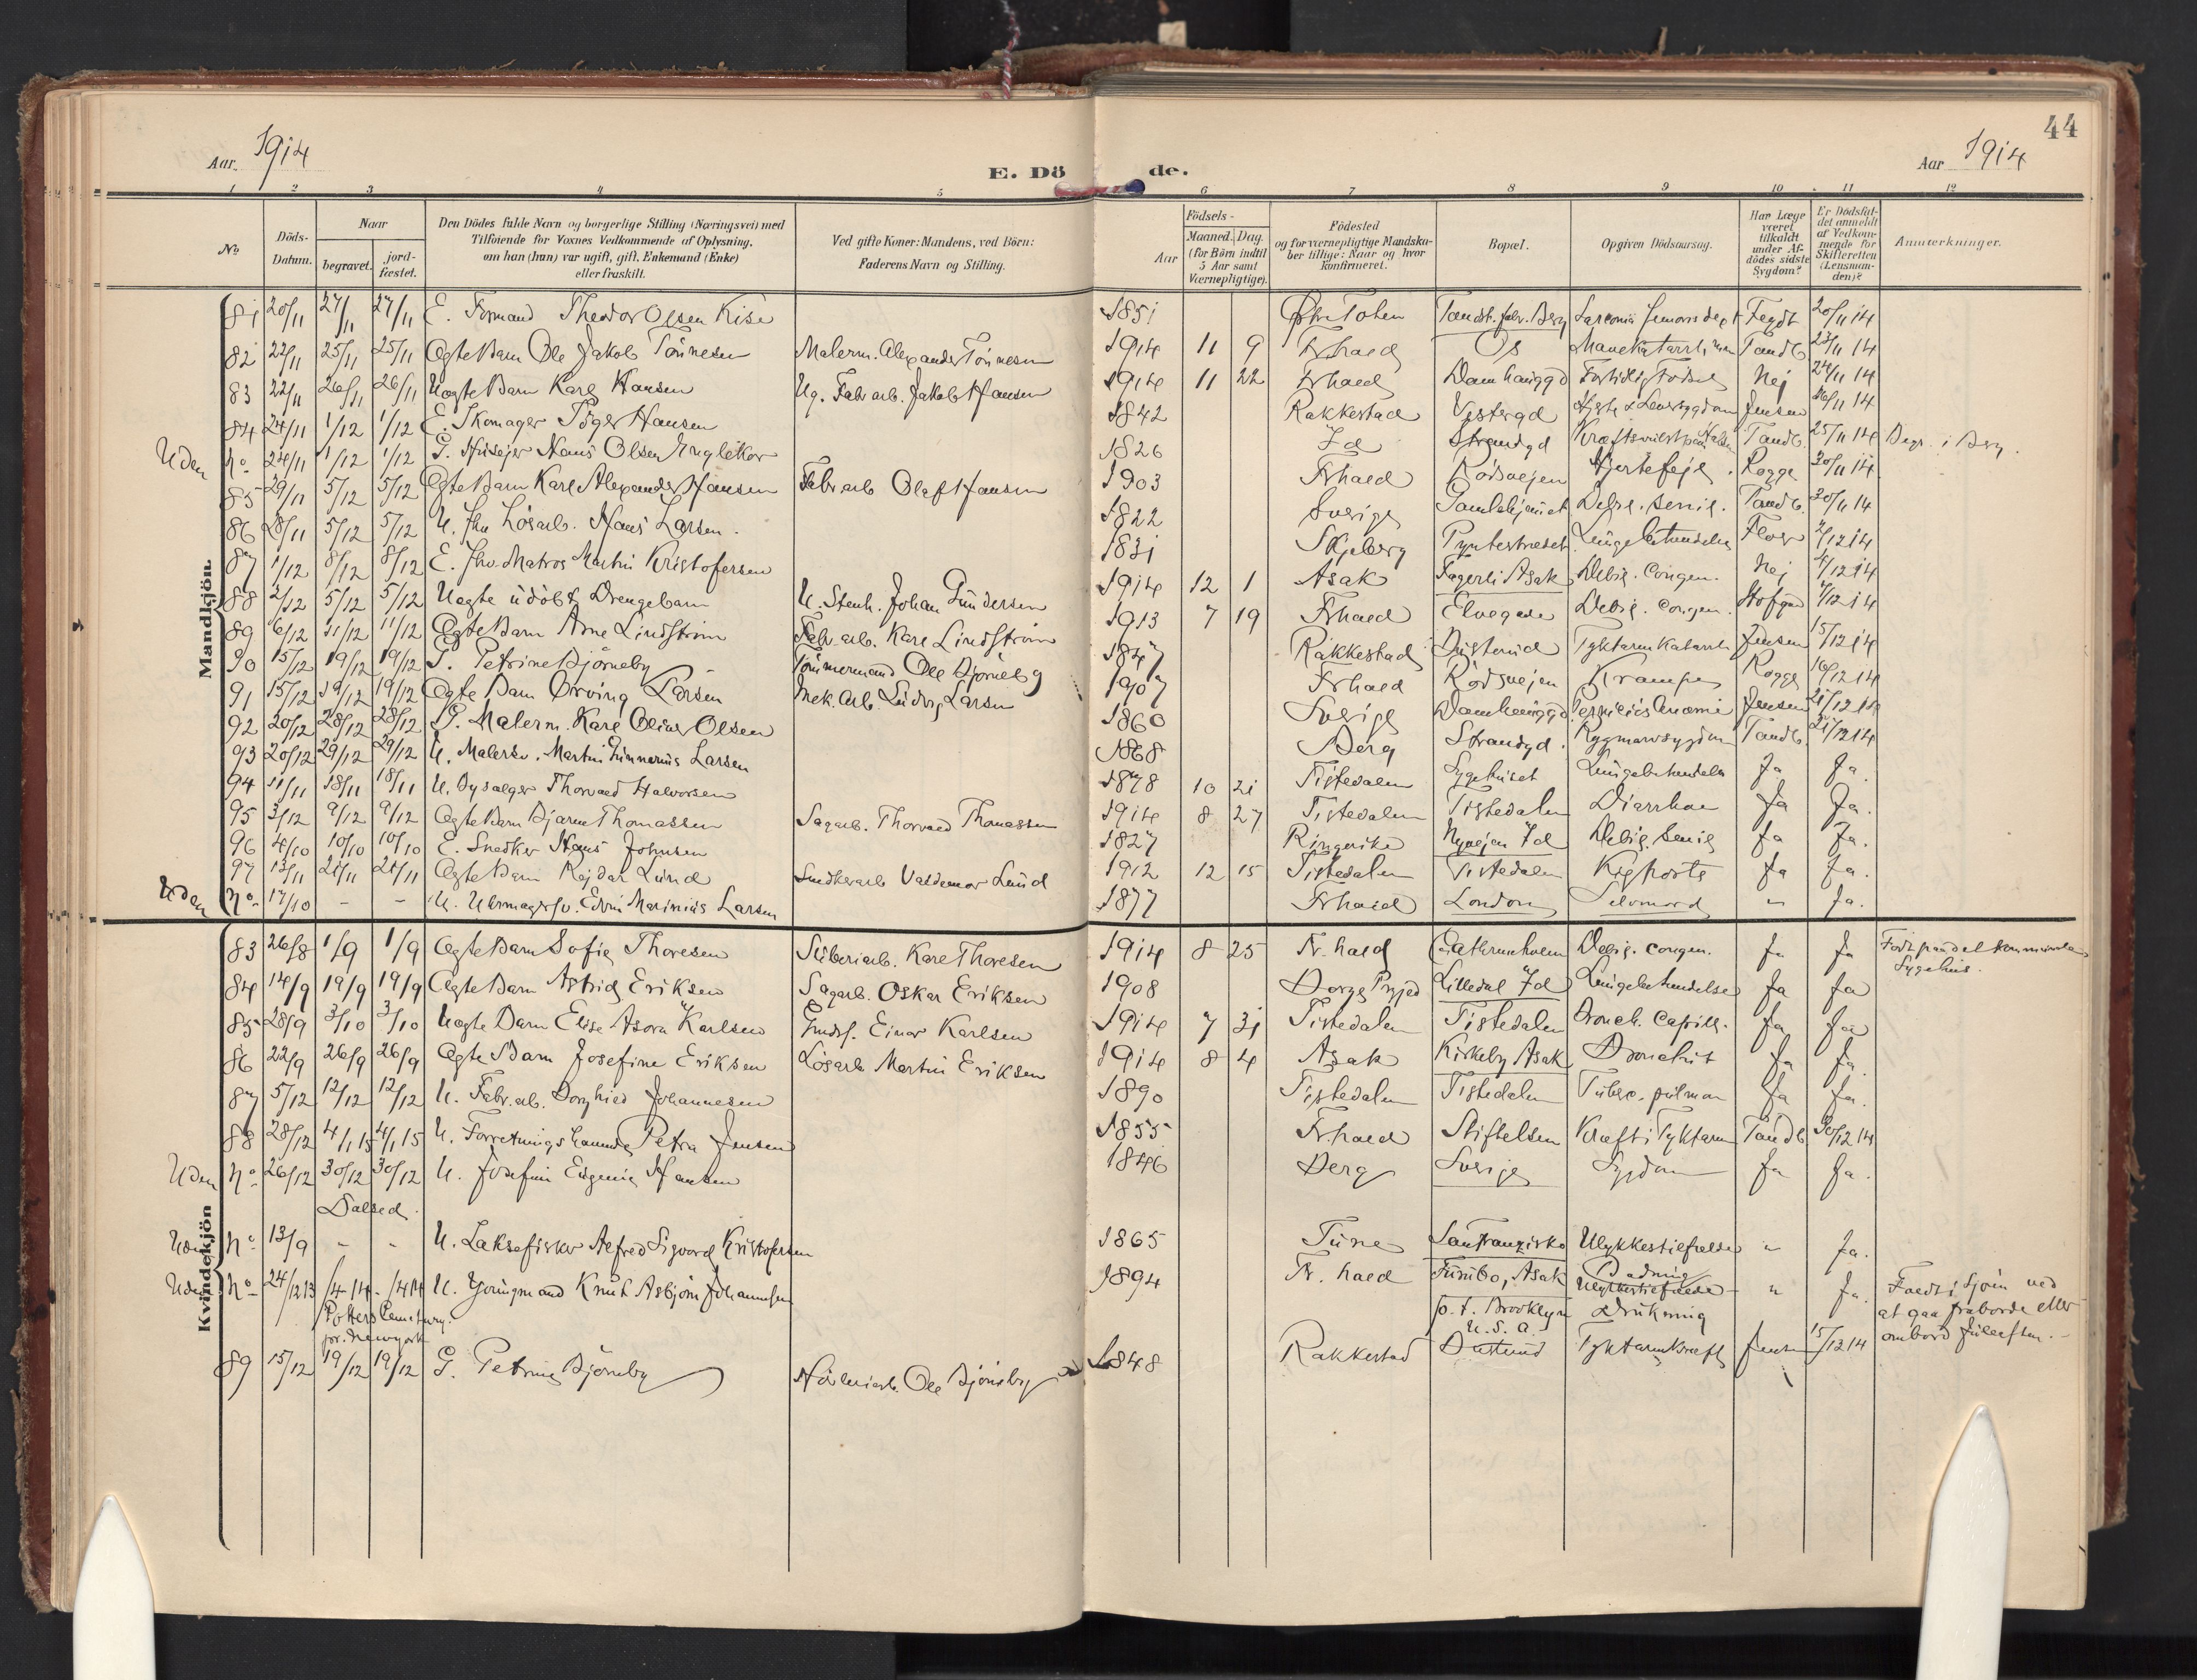 44
Aar 1914 E. Dö de. Aar 1914
1 2 3 4 5 6 7 8 9 10 11 12
No
Döds-Datum.
Naar begravet. jord-fæstet.
Den Dödes fulde Navn og borgerlige Stilling (Næringsvei) med Tilföiende for Voxnes Vedkommende af Oplysning, om han (hun) var ugift, gift, Enkemand (Enke) eller fraskilt.
Ved gifte Koner: Mandens, ved Börn: Faderens Navn og Stilling.
Födsels-
Aar Maaned. Dag. (for Börn indtil 5 Aar samt Værnepligtige).
Födested og for værnepligtige Mandskaber tillige: Naar og hvor konfirmeret.
Bopæl.
Opgiven Dödsaarsag.
Har Læge været tilkaldt under Afdödes sidste Sygdom?
Er Dödsfaldet anmeldt af Vedkommende for Skifteretten (Lensmanden)?
Anmærkninger.
Mandkjön.
81 20/11 27/11 27/11 E. Formand Theodor Olsen Kise 1851 Østr. Toten Tændst. fabr. Berg Sarcoma femoris dext Feydt 20/11 14
82 22/11 25/11 25/11 Ægte Barn Ole Jakob Tönnesen Malerm. Alexander Tönnesen 1914 11 9 Frhald Os Mavekatarrh Tandb. 23/11 14
83 22/11 26/11 26/11 Uægte Barn Karl Hansen Ug. Fabr arb. Jakob Hansen 1914 11 22 Frhald Damhauggd For tidlig Födsel Nej 24/11 14
84 24/11 1/12 1/12 E. Skomager Hansen 1842 Rakkestad Vestergd Hjerte & Leversygdom Jensen 26/11 14
Uden No. 24/11 1/12 1/12 G. Husejer Hans Olsen Englekor 1826 Id Strandgd Kræftsvulst paa Halsen Tandb. 25/11 14 Begr. i Berg.
85 29/11 5/12 5/12 Ægte Barn Karl Alexander Hansen Fabr arb Olaf Hansen 1903 Frhald Rödsvejen Hjertefejl. Rogge 30/11 14
86 28/11 5/12 5/12 U. Lösarb. Hans Larsen. 1822 Sverige Gamlehjemmet Debil. senil. Tandb. 30/11 14
87 1/12 8/12 8/12 E. Matros Martin Kristofersen 1831 Skjeberg Lungebetændelse Flor 2/12 14
88 2/12 5/12 5/12 Uægte udöbt Drengebarn U. Stenh. Johan Gundersen 1914 12 1 Asak Fagerli Asak Debil. congen. Nej 4/12 14
89 6/12 11/12 11/12 Ægte Barn Arne Lindström Fabr. arb. Karl Lindström 1913 7 19 Frhald Elvegaden Debil. congen. 7/12 14
90 15/12 19/12 19/12 G. Petrine Björneby Tömmermand Ole Björneby 1847 Rakkestad Tyktarm Katarrh Jensen 15/12 14
91 15/12 19/12 19/12 Ægte Barn Ørving Larsen Mek. Arb. Ludvig Larsen 1907 Frhald Rödsvejen Krampe Rogge 16/12 14
92 20/12 28/12 28/12 G. Malerm. Karl Oliver Olsen 1860 Sverige Damhauggd Perniciös Anæmi Jensen 21/12 14
93 20/12 29/12 29/12 U. Malersv. Martin Larsen 1868 Berg Strandgd. Rygmarvsygdom Tandb. 21/12 14
94 11/11 18/11 18/11 U. Bysælger Thorvald Halvorsen 1878 10 21 Tistedalen Sygehuset Lungebetændelse Ja Ja.
95 3/12 9/12 9/12 Ægte Barn Bjarne Thomassen Sagarb. Thorvald Thomassen 1914 8 27 Tistedalen Tistedalen Diarrhoe Ja Ja.
96 4/10 10/10 10/10 E. Snedker Hans Johnsen 1827 Ringerike Nyvejen Id Debil. Senil Ja Ja.
97 13/11 21/11 21/11 Ægte Barn Rejdar Lund Snedkerarb Valdemar Lund 1912 12 15 Tistedalen Tistedalen Kighoste Ja Ja.
Uden No. 17/10 - - U. Uhrmagersv. Edvin Marinius Larsen 1877 Frhald London Selvmord " Ja.
Kvindekjön
83 26/8 1/9 1/9 Ægte Barn Sofie Thoresen Sliberiarb. Karl Thoresen 1914 8 25 Fr. hald Cathrineholm Debil. congen. Ja Ja Födt paa det kommunale Sygehus.
84 14/9 19/9 19/9 Ægte Barn Astrid Eriksen Sagarb. Oskar Eriksen 1908 Borge Prgjd Lilledal Id Lungebetændelse Ja Ja
85 28/9 3/10 3/10 Uægte Barn Elise Asora Karlsen Einar Karlsen 1914 7 31 Tistedalen Tistedalen Bronch. Capill. Ja Ja
86 22/9 26/9 26/9 Ægte Barn Josefine Eriksen Lösarb Martin Eriksen 1914 8 4 Asak Kirkeby Asak Bronchit Ja Ja.
87 5/12 12/12 12/12 U. Fabr. arb. Borghild Johannesen 1890 Tistedalen Tistedalen Tuberc. pulmon Ja Ja.
88 28/12 4/1 15 4/1 15 U. Forretningshavende Petra Jensen 1855 Fr. hald Stiftelsen Kræft i Tyktarm Tandb 30/12 14
Uden No. 26/12 30/12 30/12 U. Josefine Eugenie Hansen 1846 Berg Sverige Sygdom Ja Ja.
Dalsed.
Uden No. 13/9 - - U. Laksefisker Alfred Sigvard Kristofersen 1865 Tune San Franzisko Ulykkestilfælde " Ja.
Uden No. 24/12 13 /4 14 - /4 14 U. Youngmand Knut Asbjörn Johannesen 1894 Fr. hald Tumbo, Asak Ulykkestilfælde " Ja. Faldt i Sjöen ved
p. t. Brooklyn Drukning at gaa fraborde eller
Potters Cemetery. U. S. A. ombord Juleaften.
pr. Newyork
89 15/12 19/12 19/12 G. Petrine Björneby Ole Björneby 1848 Rakkestad Tyktarmkræft Jensen 15/12 14